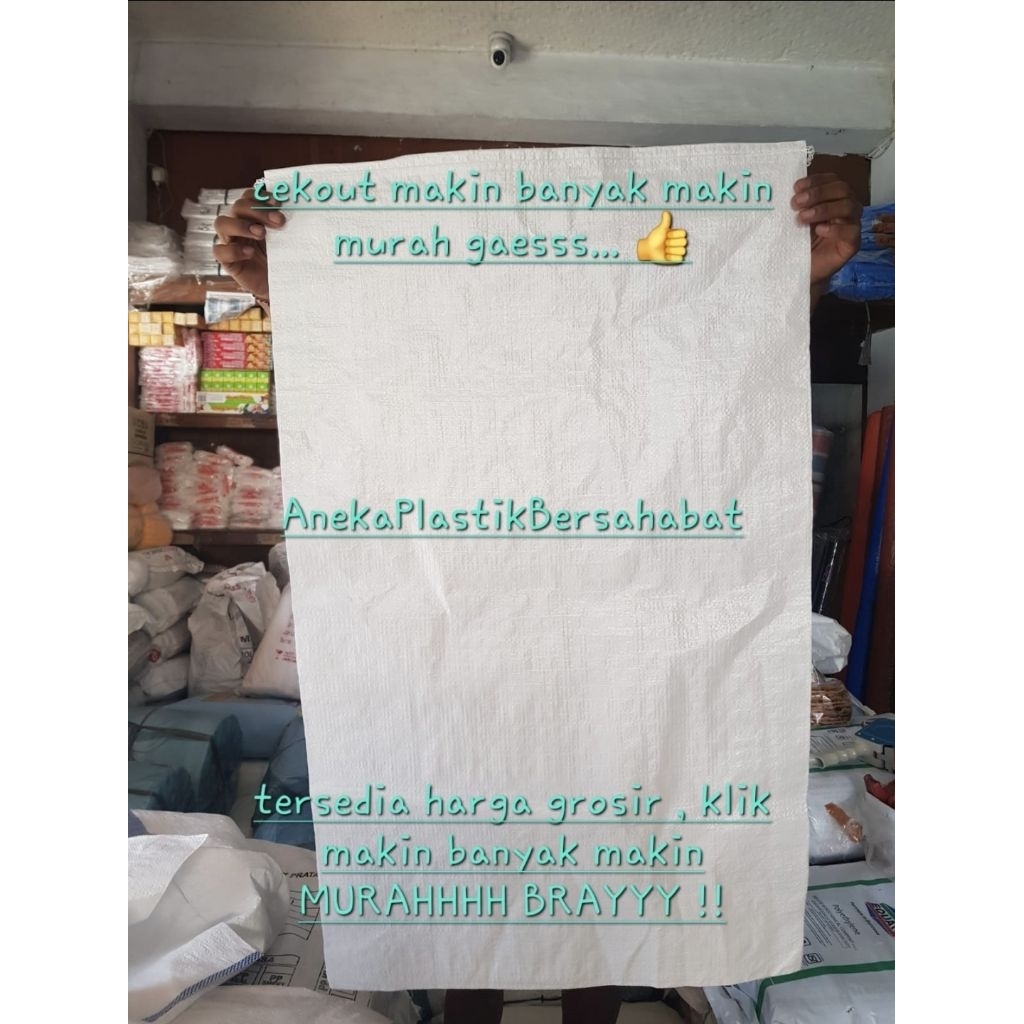 cekout makin banyak makin
murah gaesss... 👍
AnekaPlastikBersahabat
tersedia harga grosir , klik
makin banyak makin
MURAHHHH BRAYYY !!
Polyethylene